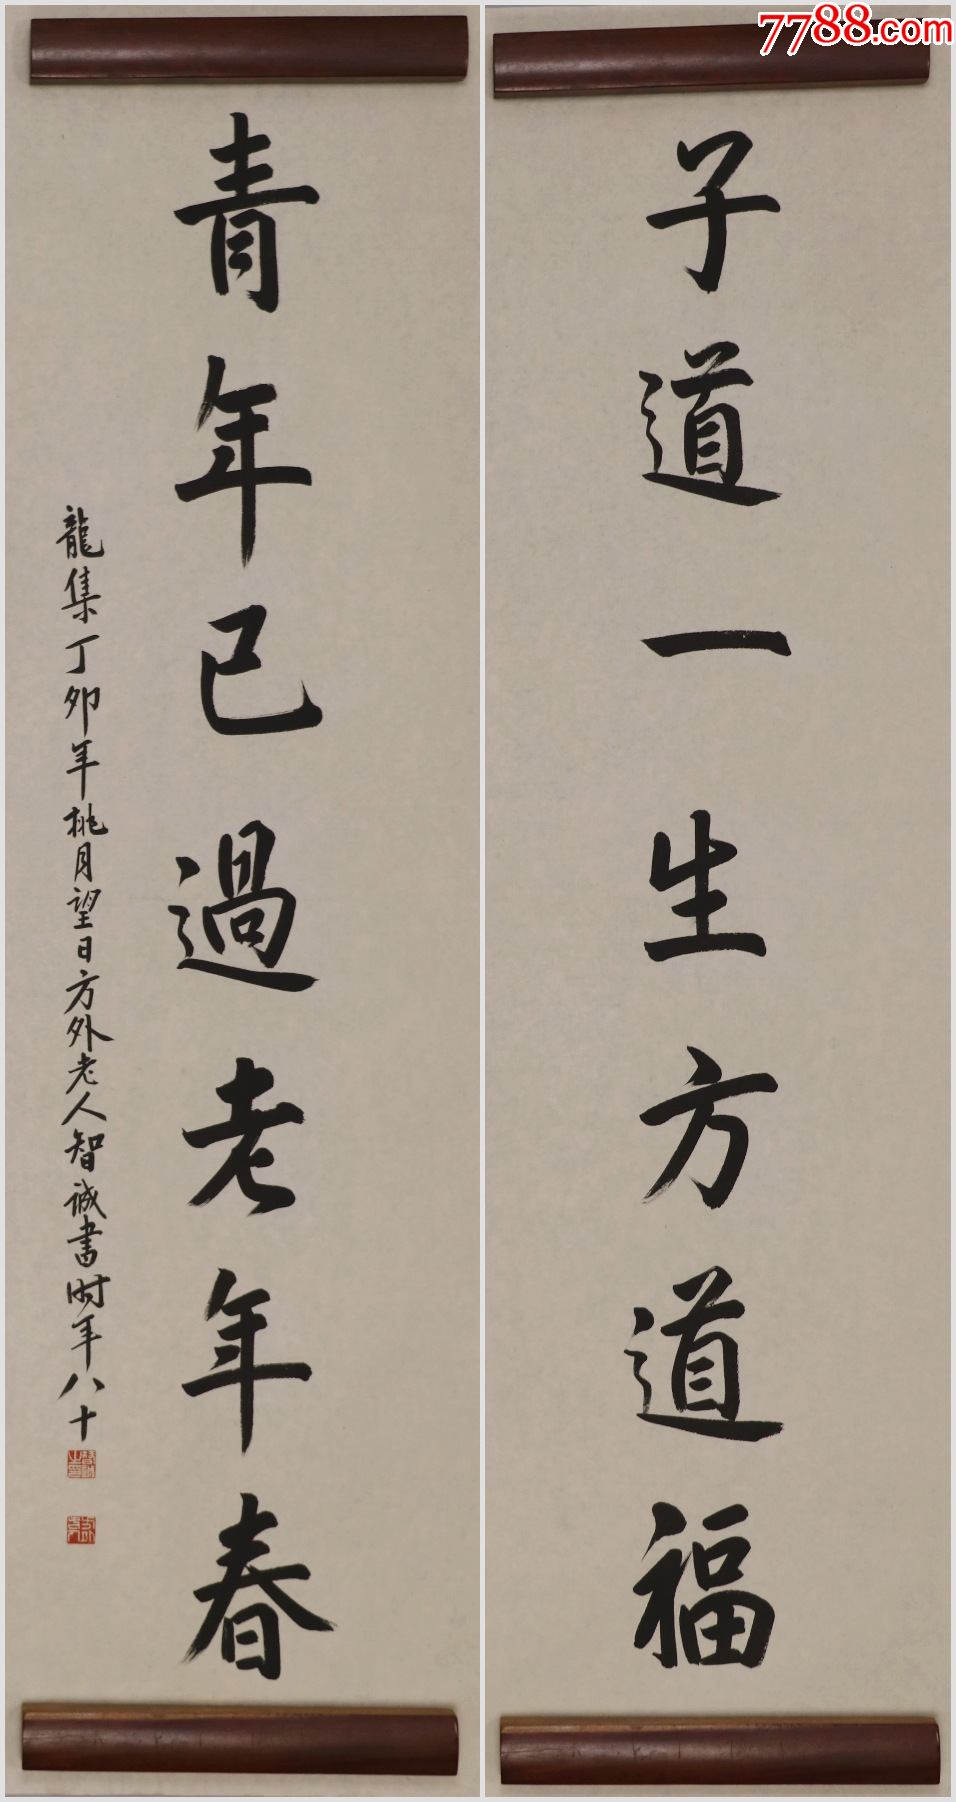 7788.com
子道一生方道福
青年已過老年春
龍集丁卯年桃月望日方外老人智誠書時年八十